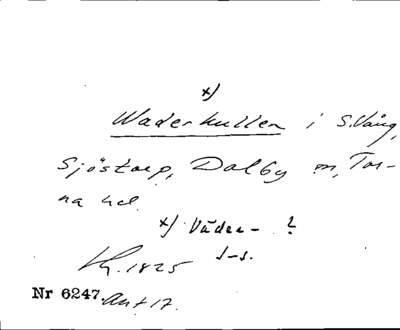 x)
Waderkullen i S. Vång,
Sjöstorp, Dalby sn, Tor-
na hd.
x) Väder- ?
1825
Nr 6247. Ant 17.